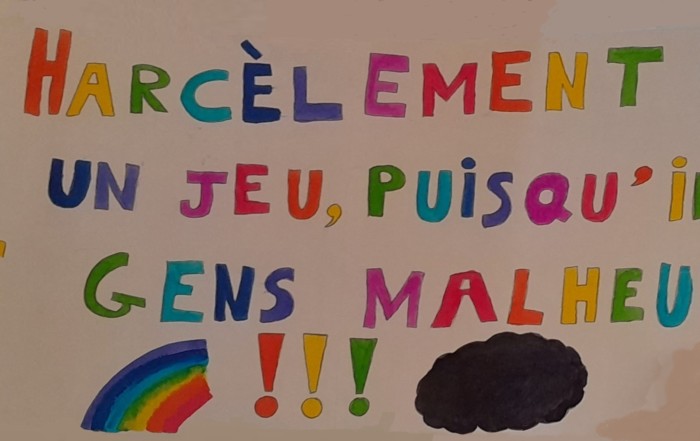 HARCÈLEMENT
UN JEU, PUISQU'
GENS MALHEU
!!!